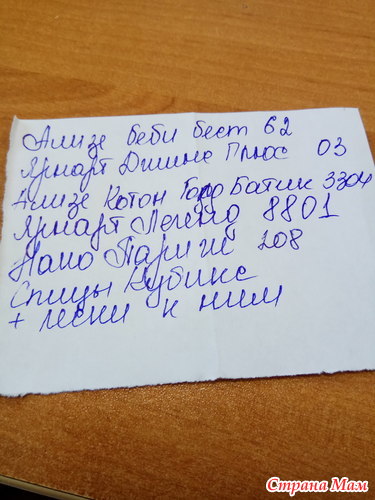 Ализе беби бест 62
Ярнарт Джинс Плюс 03
Ализе Котон Голд Батик 3304
Ярнарт Легенд 8801
Нако Париж 208
Спицы Кубикс
+ лески к ним
Страна Мам